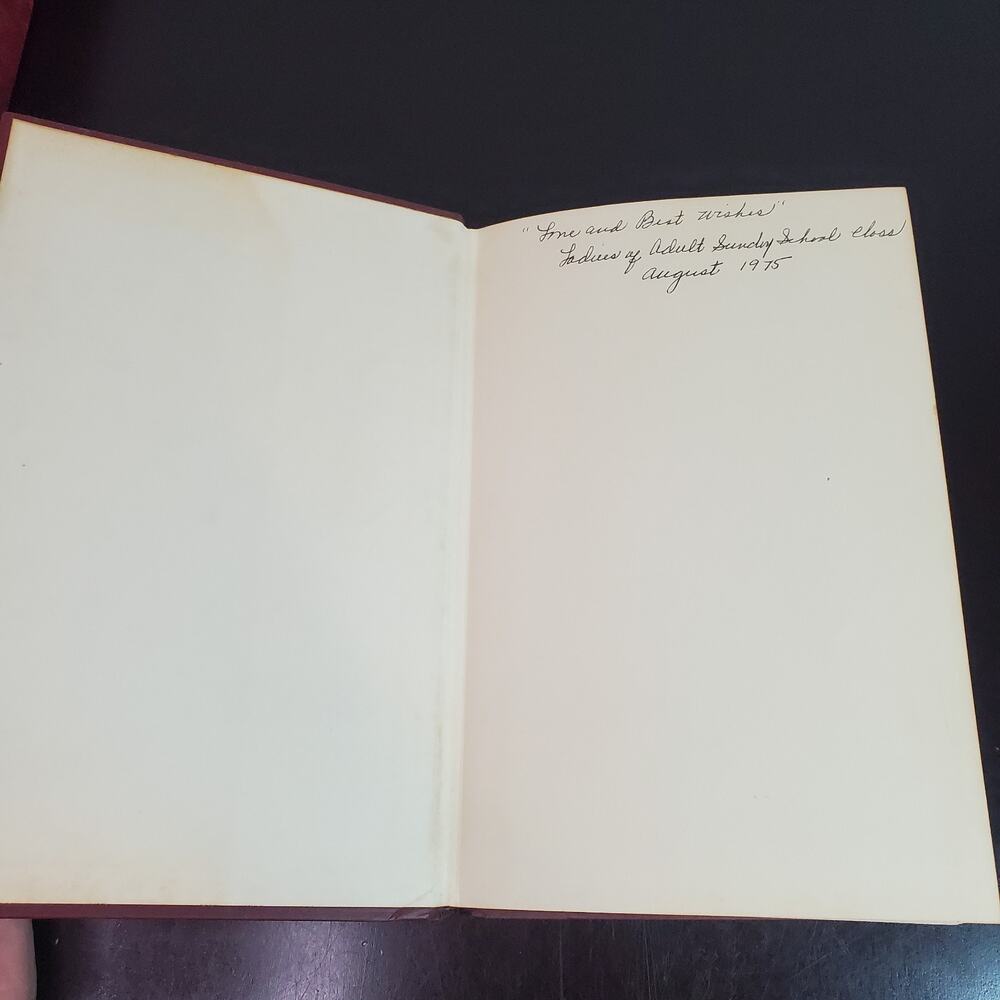 "Love and Best Wishes"
Ladies of Adult Sunday School Class
August 1975